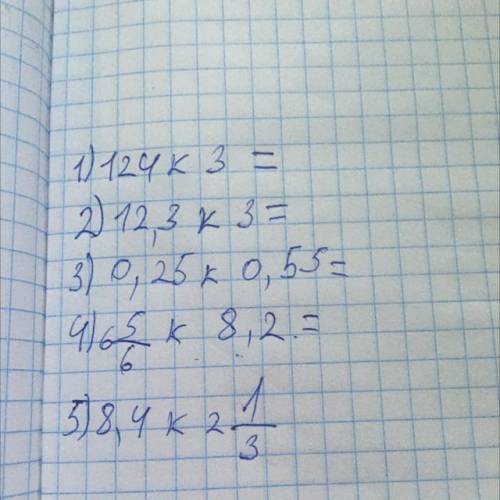 1) 124 к 3 =
2) 12,3 к 3 =
3) 0,25 к 0,55 =
4) 6 5/6 к 8,2 =
5) 8,4 к 2 1/3